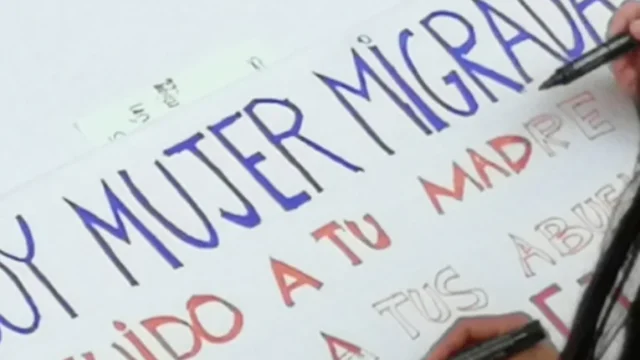 OY MUJER MIGRADA
UIDO A TU MADRE
A TUS ABUE